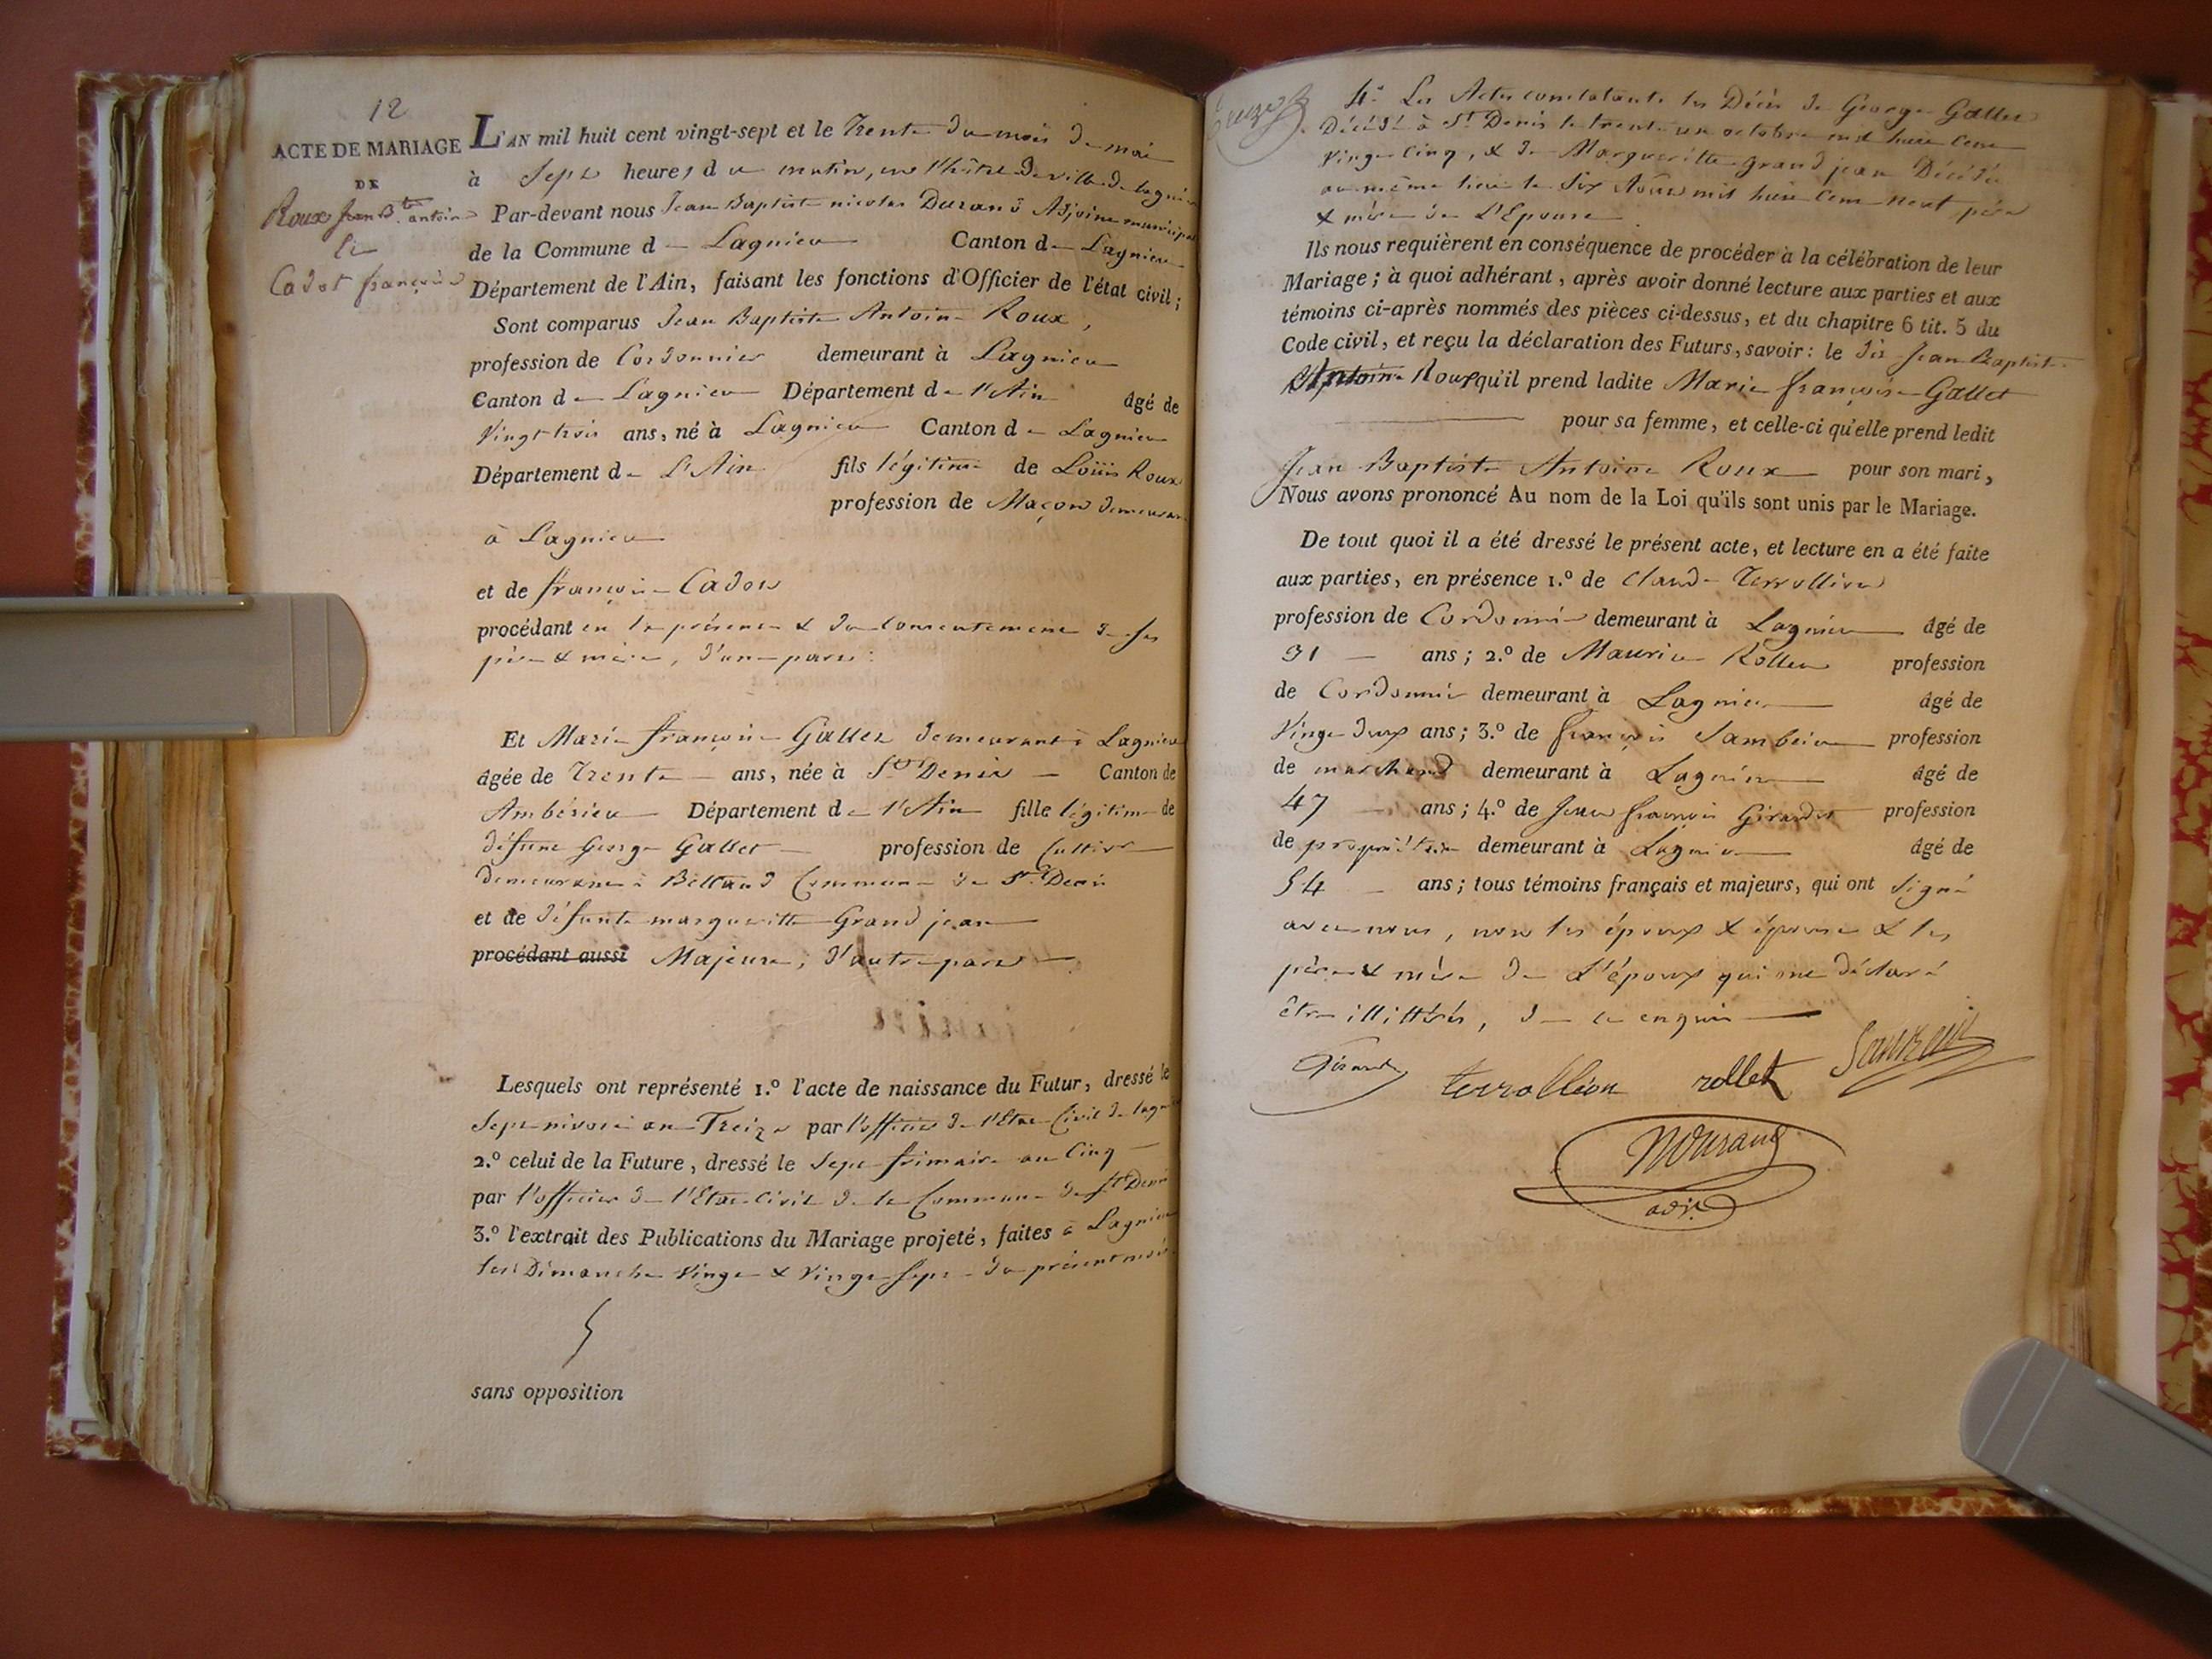 12
ACTE DE MARIAGE
DE
Roux Jean B.te antoine
Et
Cadot françoise
L'AN mil huit cent vingt-sept et le Trente du mois de mai
à Sept heures du matin, en l'hôtel de ville de lagnieu
Par-devant nous Jean Baptiste nicolas Durand Adjoint municipal
de la Commune de Lagnieu Canton de Lagnieu
Département de l'Ain, faisant les fonctions d'Officier de l'état civil;
Sont comparus Jean Baptiste Antoine Roux,
profession de Cordonnier demeurant à Lagnieu
Canton de Lagnieu Département de l'Ain âgé de
Vingt trois ans, né à Lagnieu Canton de Lagnieu
Département de L'Ain fils légitime de Loüis Roux
profession de Maçon demeurant
à Lagnieu
et de françoise Cadot
procédant en la présence & du consentement de ses
père & mère, d'une part:
Et Marie françoise Gallet demeurant à Lagnieu
âgée de Trente ans, née à St Denis Canton de
Ambérieu Département de l'Ain fille légitime de
défunt George Gallet profession de Cultivr
demeurant à Bettand Commune de St Denis
et de défunte margueritte Grand jean
procédant aussi Majeure, d'autre part
Lesquels ont représenté 1.º l'acte de naissance du Futur, dressé le
Sept nivose an Treize par l'officier de l'Etat Civil de lagnieu
2.º celui de la Future, dressé le Sept frimaire an Cinq
par l'officier de l'Etat Civil de la Commune de St Denis
3.º l'extrait des Publications du Mariage projeté, faites à Lagnieu
les Dimanche Vingt & Vingt Sept du présent mois
sans opposition
4.º Les Actes constatants les Décès de George Gallet
Décédé à St Denis le trente un octobre mil huit Cent
Vingt Cinq, & de Margueritte Grand jean Décédée
au même lieu le Six Août mil huit Cent Neuf père
& mère de L'Epouse
Ils nous requièrent en conséquence de procéder à la célébration de leur
Mariage; à quoi adhérant, après avoir donné lecture aux parties et aux
témoins ci-après nommés des pièces ci-dessus, et du chapitre 6 tit. 5 du
Code civil, et reçu la déclaration des Futurs, savoir: le dit Jean Baptiste
Antoine Roux qu'il prend ladite Marie françoise Gallet
pour sa femme, et celle-ci qu'elle prend ledit
Jean Baptiste Antoine Roux pour son mari,
Nous avons prononcé Au nom de la Loi qu'ils sont unis par le Mariage.
De tout quoi il a été dressé le présent acte, et lecture en a été faite
aux parties, en présence 1.º de Claude Terrollion
profession de Cordonnier demeurant à Lagnieu âgé de
31 ans; 2.º de Maurice Rollet profession
de Cordonnier demeurant à Lagnieu âgé de
Vingt deux ans; 3.º de françois profession
de marchand demeurant à Lagnieu âgé de
47 ans; 4.º de Jean françois Girardet profession
de propriétaire demeurant à Lagnieu âgé de
54 ans; tous témoins français et majeurs, qui ont signé
avec nous, non les époux & épouse & les
père & mère de L'époux qui ont déclaré
être illittérés, de ce enquis
terrollion rollet
NDurand
adjt